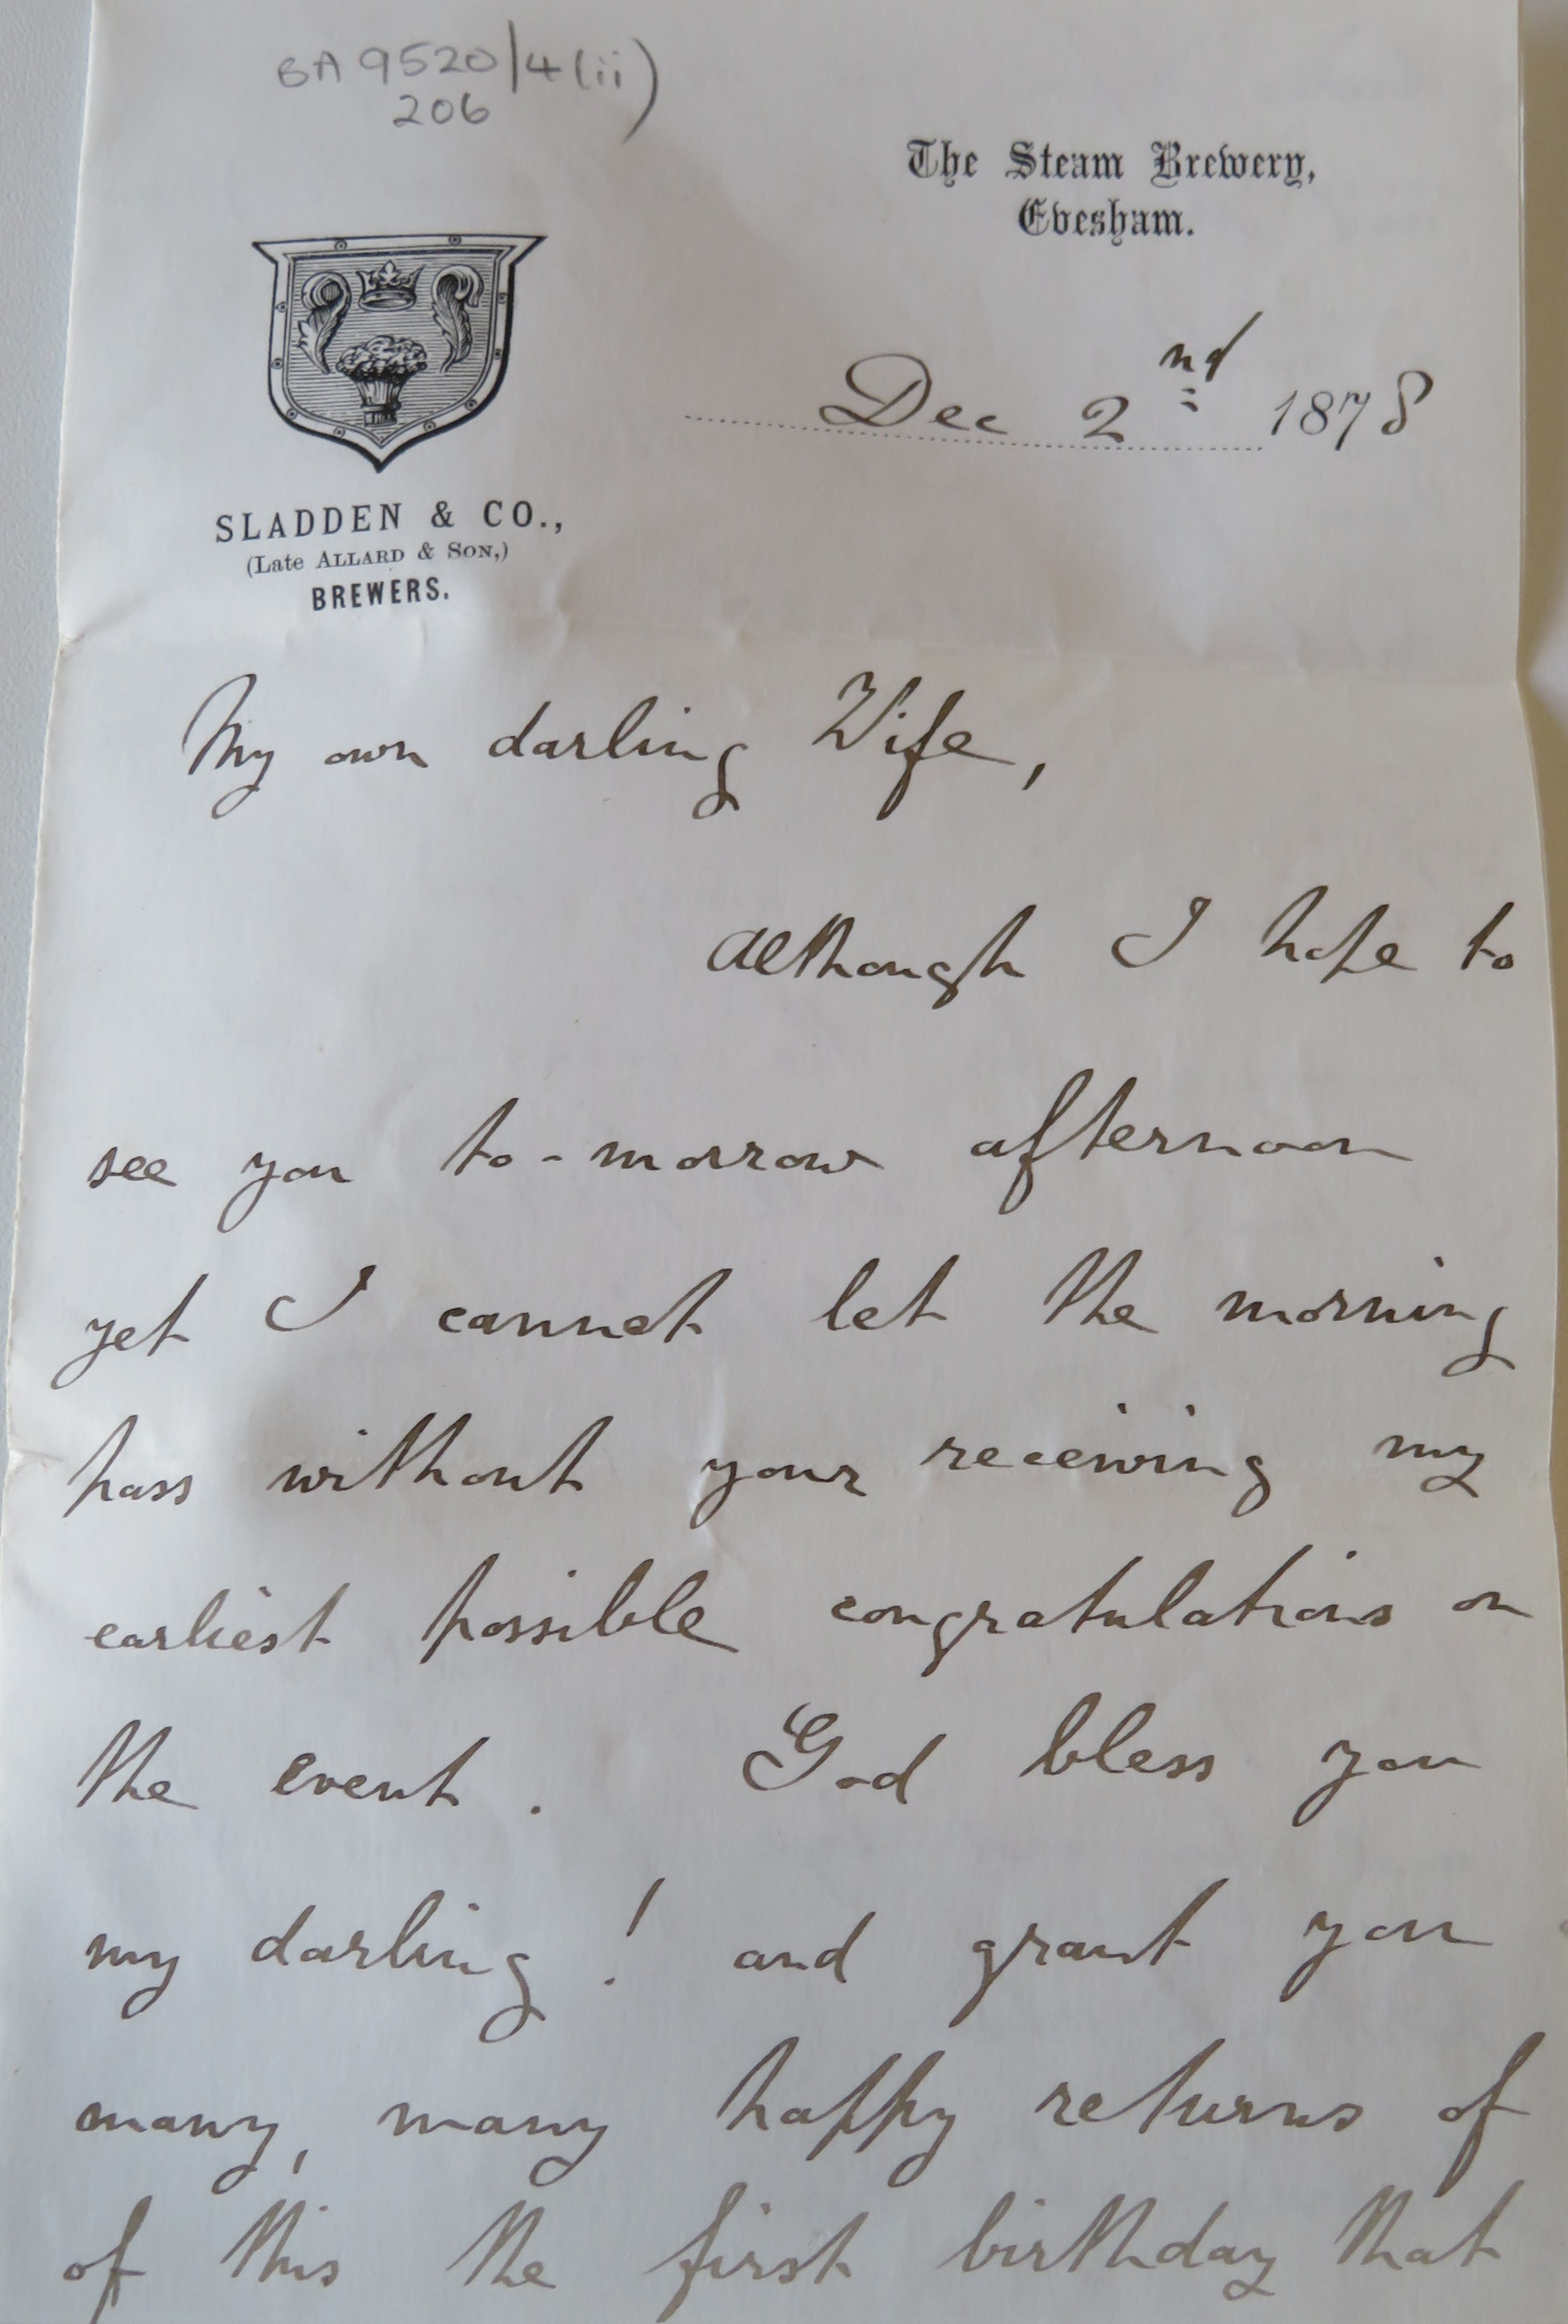 BA 9520/4(ii)
206
The Steam Brewery,
Evesham.
Dec 2nd 1878
SLADDEN & CO.,
(Late ALLARD & SON,)
BREWERS.
My own darling Wife,
Although I hope to
see you to-morrow afternoon
yet I cannot let the morning
pass without your receiving my
earliest possible congratulations on
the event. God bless you
my darling! and grant you
many, many happy returns of
of this the first birthday that